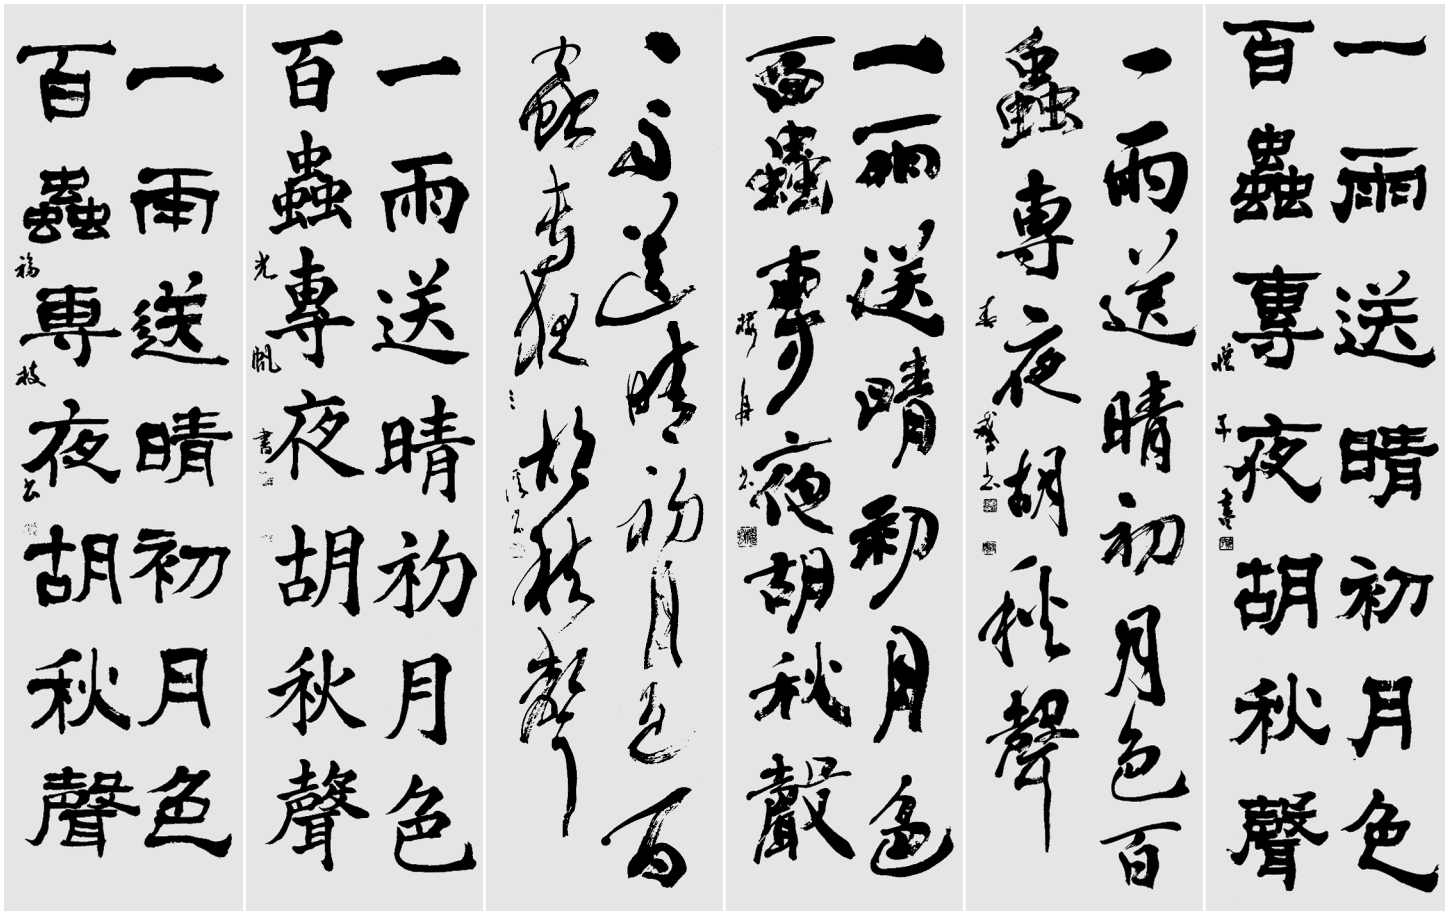 一雨送晴初月色
百蟲專夜胡秋聲
一雨送晴初月色百
蟲專夜胡秋聲
一雨送晴初月色
百蟲專夜胡秋聲
一雨送晴初月色百
蟲專夜胡秋聲
一雨送晴初月色
百蟲專夜胡秋聲
光帆書
一雨送晴初月色
百蟲專夜胡秋聲
福枝书